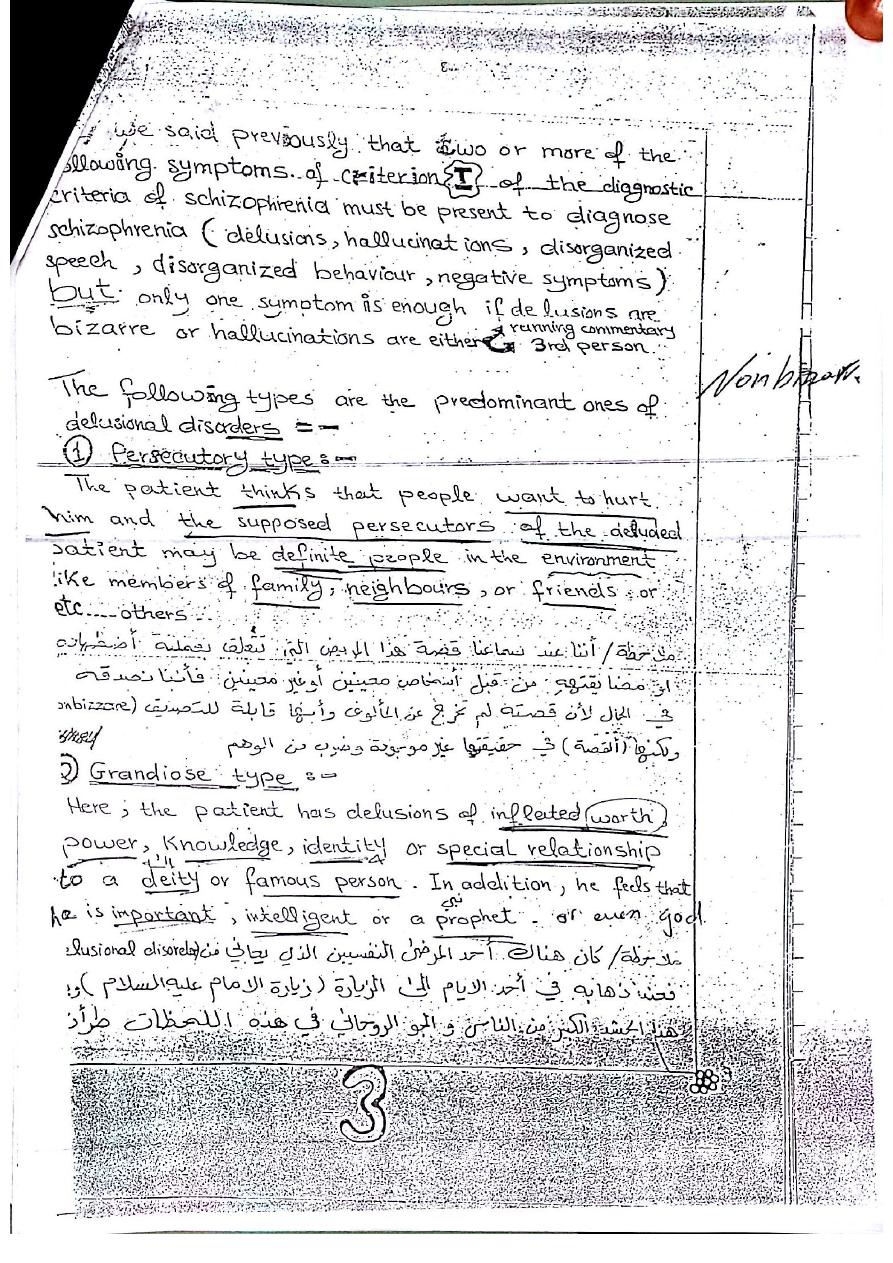 we said previously that two or more of the
following symptoms of criterion I of the diagnostic
criteria of schizophrenia must be present to diagnose
schizophrenia ( delusions, hallucinations, disorganized
speech, disorganized behaviour, negative symptoms)
but only one symptom is enough if delusions are
bizarre or hallucinations are either running commentary
3rd person...
Nonbizarr.
The following types are the predominant ones of
delusional disorders =-
① Persecutory type :-
The patient thinks that people want to hurt
him and the supposed persecutors of the deluded
patient may be definite people in the environment
like members of family, neighbours, or friends or
etc.... others ..
ملاحظة/ أننا عند سماعنا قصة هذا المريض التي تتعلق بعملية أضطهاده
او مضايقته من قبل أشخاص معينين أو غير معينين فأننا نصدقه
في الحال لأن قصته لم تخرج عن المألوف وأنها قابلة للتصديق (onbizzare
ولكنها (القصة) في حقيقتها غير موجودة وضرب من الوهم
2) Grandiose type :-
Here ; the patient has delusions of inflated worth,
power, Knowledge, identity or special relationship
to a deity or famous person. In addition, he feels that
he is important, intelligent or a prophet - or even god
نبي
ملاحظة/ كان هناك أحد المرضى النفسيين الذي يعاني من (lusional disoreda
فعند ذهابه في أحد الايام الى الزيارة (زيارة الامام عليه السلام)
هذا الحشد الكبير من الناس و الجو الروحاني في هذه اللحظات طرأت
3